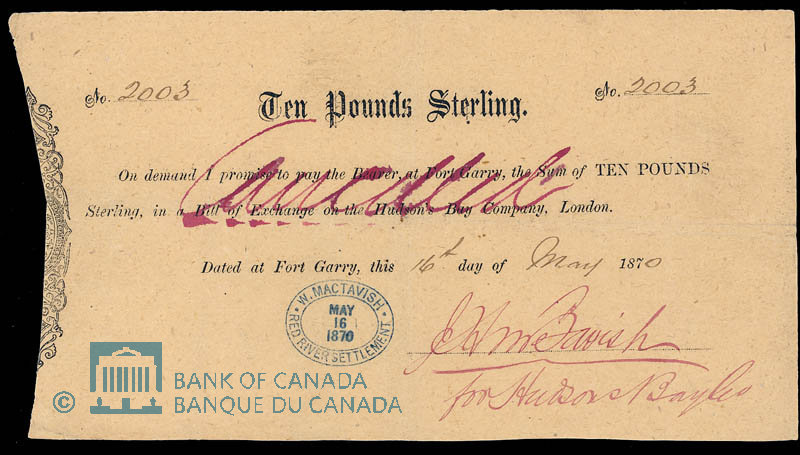 No. 2003
No. 2003
Ten Pounds Sterling.
Cancelled
On demand I promise to pay the Bearer, at Fort Garry, the Sum of TEN POUNDS
Sterling, in a Bill of Exchange on the Hudson's Bay Company, London.
Dated at Fort Garry, this 16th day of May 1870
W. MACTAVISH
MAY
16
1870
RED RIVER SETTLEMENT
J H McTavish
for Hudsons Bay Co
© BANK OF CANADA
BANQUE DU CANADA